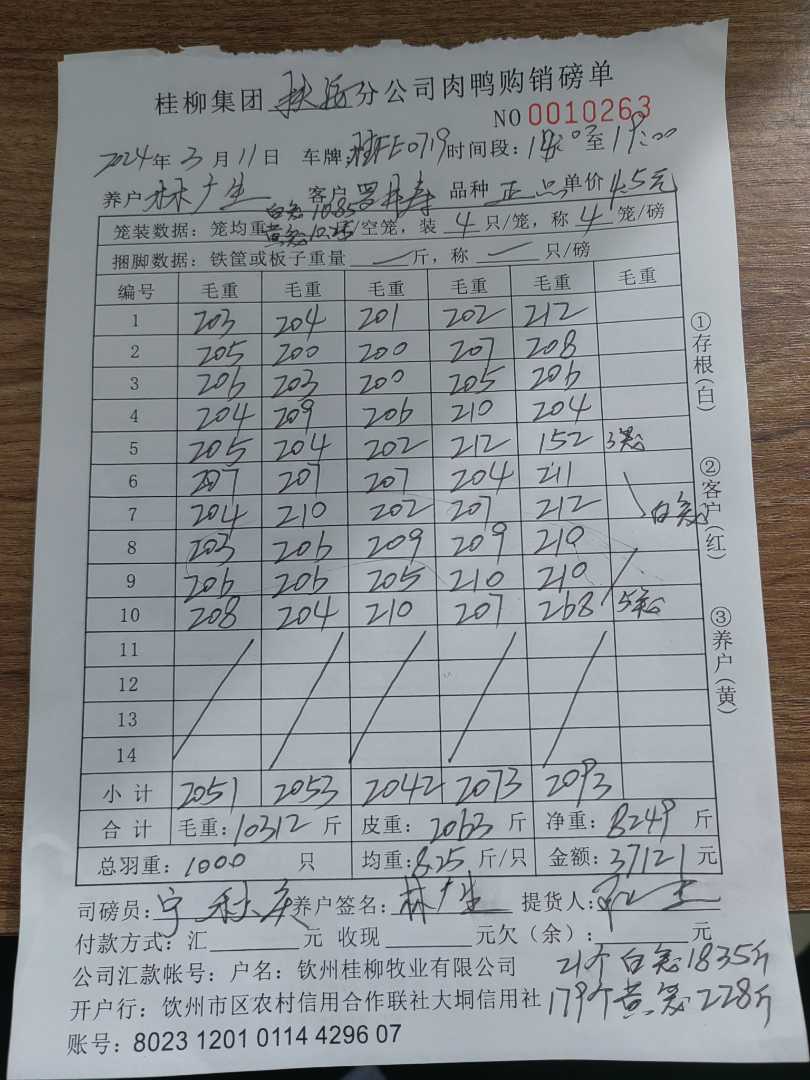 桂柳集团 扶绥 分公司肉鸭购销磅单
NO 0010263
2024年3月11日 车牌 桂FE0719 时间段: 18:00至19:00
养户 林广生 客户 品种 正品 单价 4.5元
笼装数据: 笼均重 白笼 1085 黄笼 /空笼, 装 4 只/笼, 称 4 笼/磅
捆脚数据: 铁筐或板子重量 斤, 称 只/磅
编号 毛重 毛重 毛重 毛重 毛重 毛重
1 203 204 201 202 212
2 205 200 200 207 208
3 206 203 200 205 206
4 204 209 206 210 204
5 205 204 202 212 152 3笼
6 207 207 207 204 211
7 204 210 202 207 212 白笼
8 203 206 209 209 210
9 206 206 205 210 210
10 208 204 210 207 268 5笼
11
12
13
14
小计 2051 2053 2042 2073 2093
合计 毛重: 10312 斤 皮重: 2063 斤 净重: 8249 斤
总羽重: 1000 只 均重: 825 斤/只 金额: 37121 元
司磅员: 宁秋庆 养户签名: 林广生 提货人:
付款方式: 汇 元 收现 元欠(余): 元
公司汇款帐号: 户名: 钦州桂柳牧业有限公司 21个白笼 1835斤
开户行: 钦州市区农村信用合作联社大垌信用社 179个黄笼 228斤
账号: 8023 1201 0114 4296 07
①存根(白)
②客户(红)
③养户(黄)